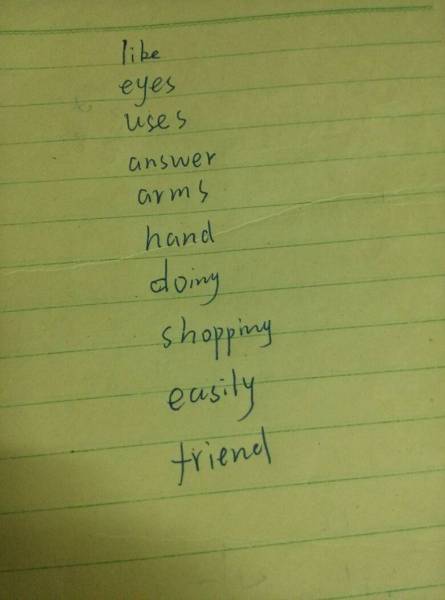 like
eyes
uses
answer
arms
hand
doing
shopping
easily
friend